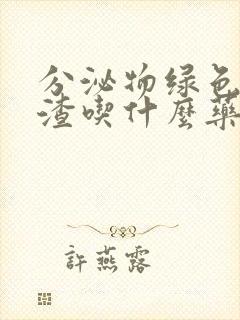 分泌物绿色
渣喫什麼藥
許燕露